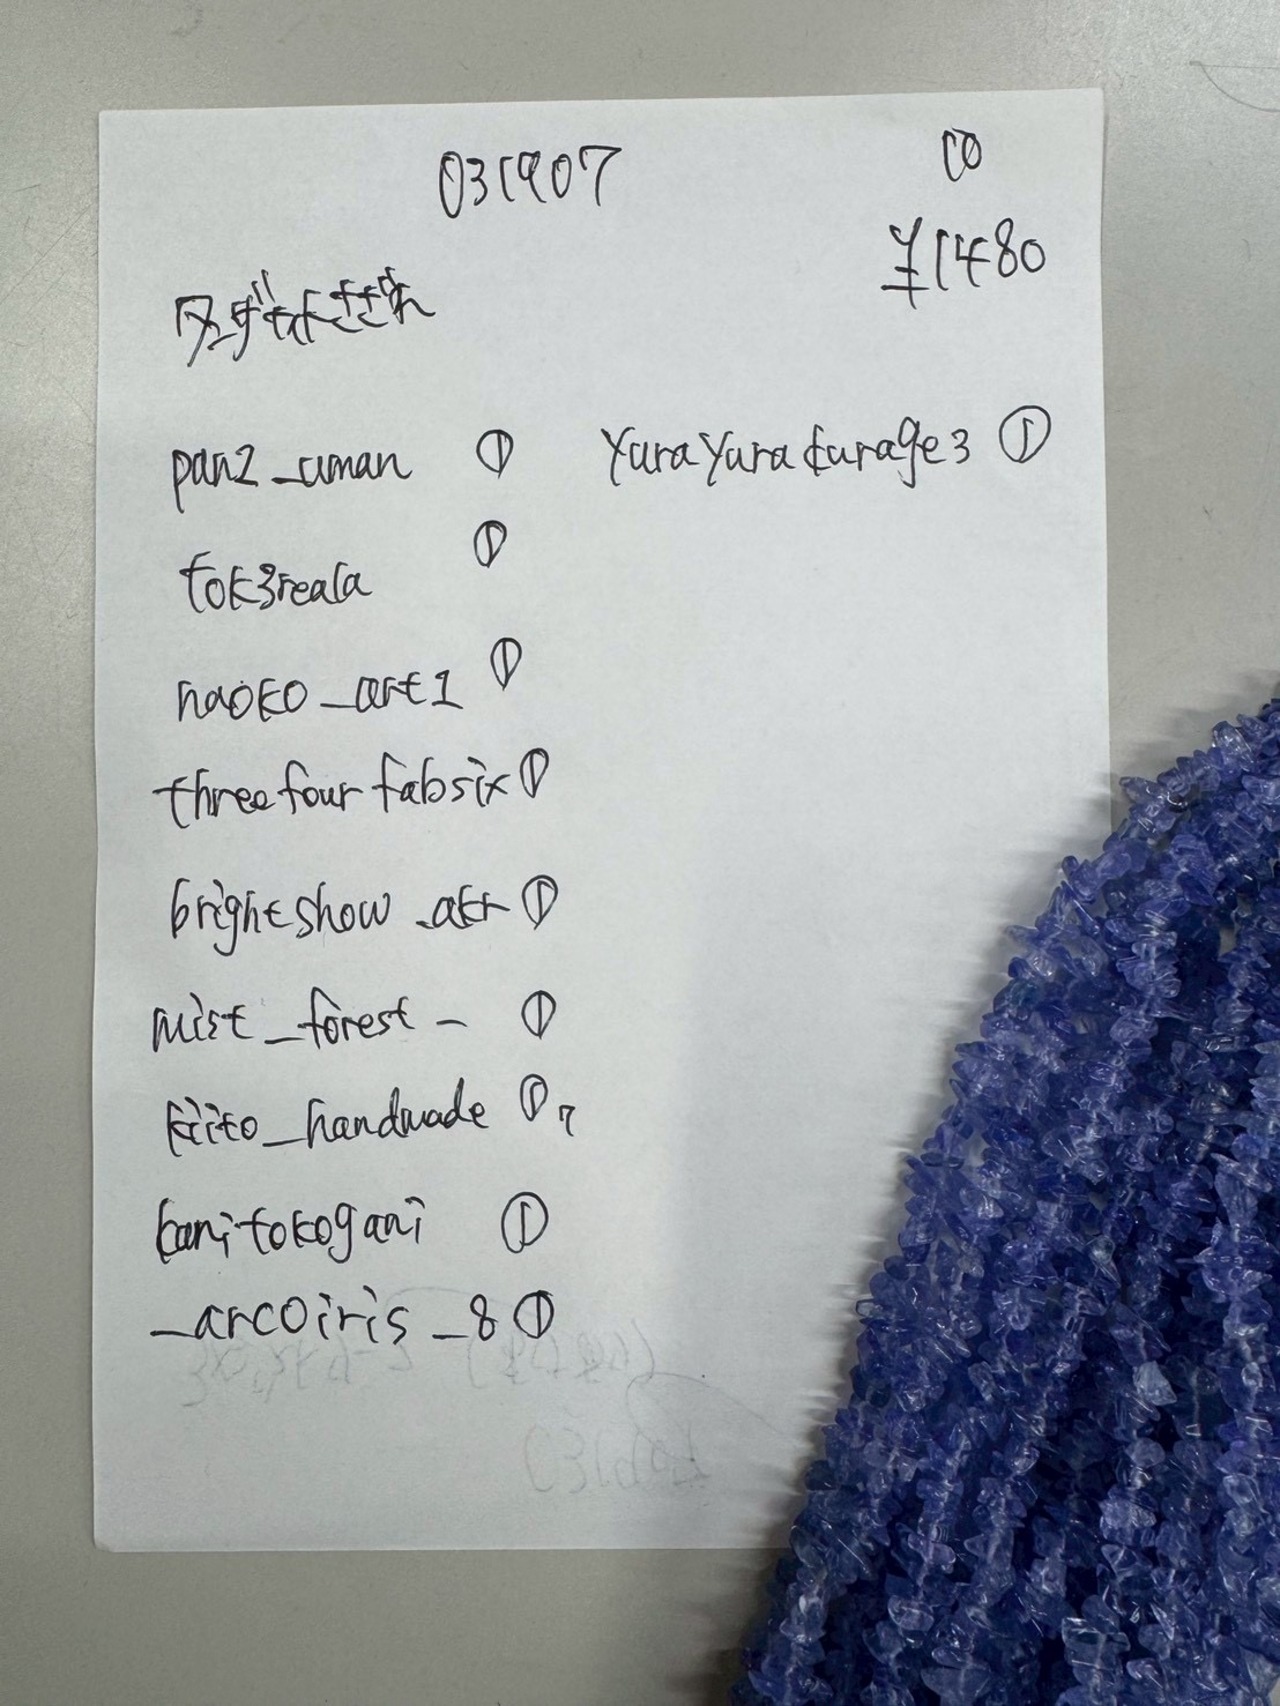 031907
10
¥1480
タンザナイトさざれ
pan2_uman ①
yurayurakurage3 ①
tok3reala ①
naoko_art1 ①
threefourfabsix ①
brightshow_akr ①
mist_forest_ ①
kiito_handmade ①
kanitokogani ①
_arcoiris_8 ①